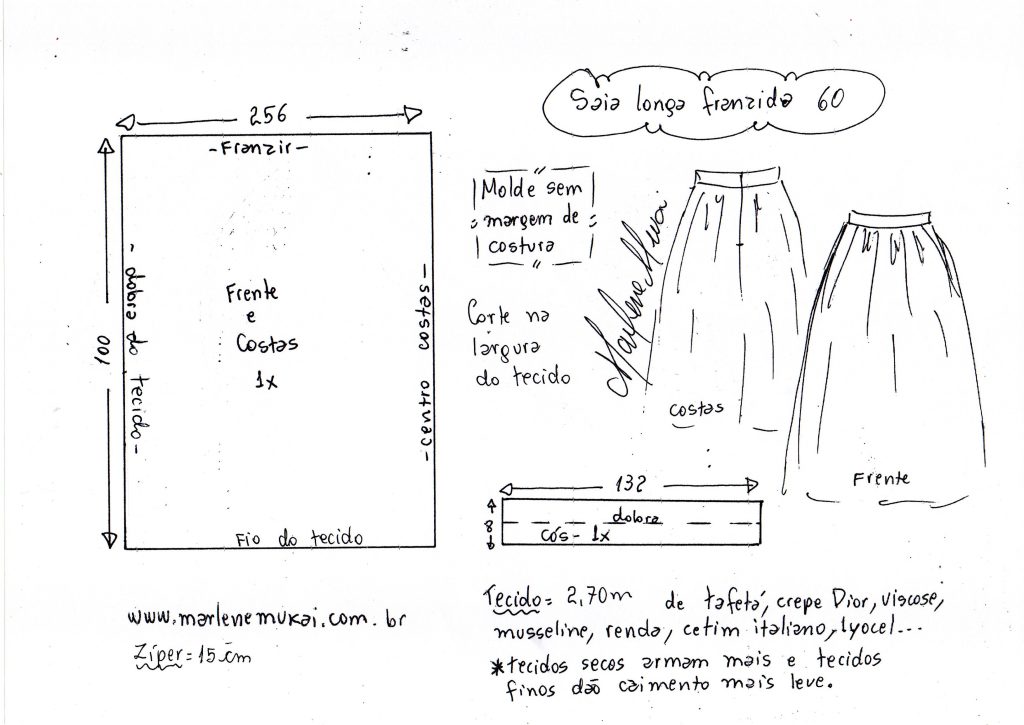 Saia longa franzida 60
256
-Franzir-
100
-dobra do tecido-
Frente
e
Costas
1x
-centro costas-
Fio do tecido
Molde sem
margem de
costura
Corte na
largura
do tecido
Marlene Mukai
costas
Frente
132
8
dobra
cós- 1x
www.marlenemukai.com.br
Zíper=15cm
Tecido= 2,70m de tafetá, crepe Dior, viscose,
musseline, renda, cetim italiano, lyocel...
*tecidos secos armam mais e tecidos
finos dão caimento mais leve.